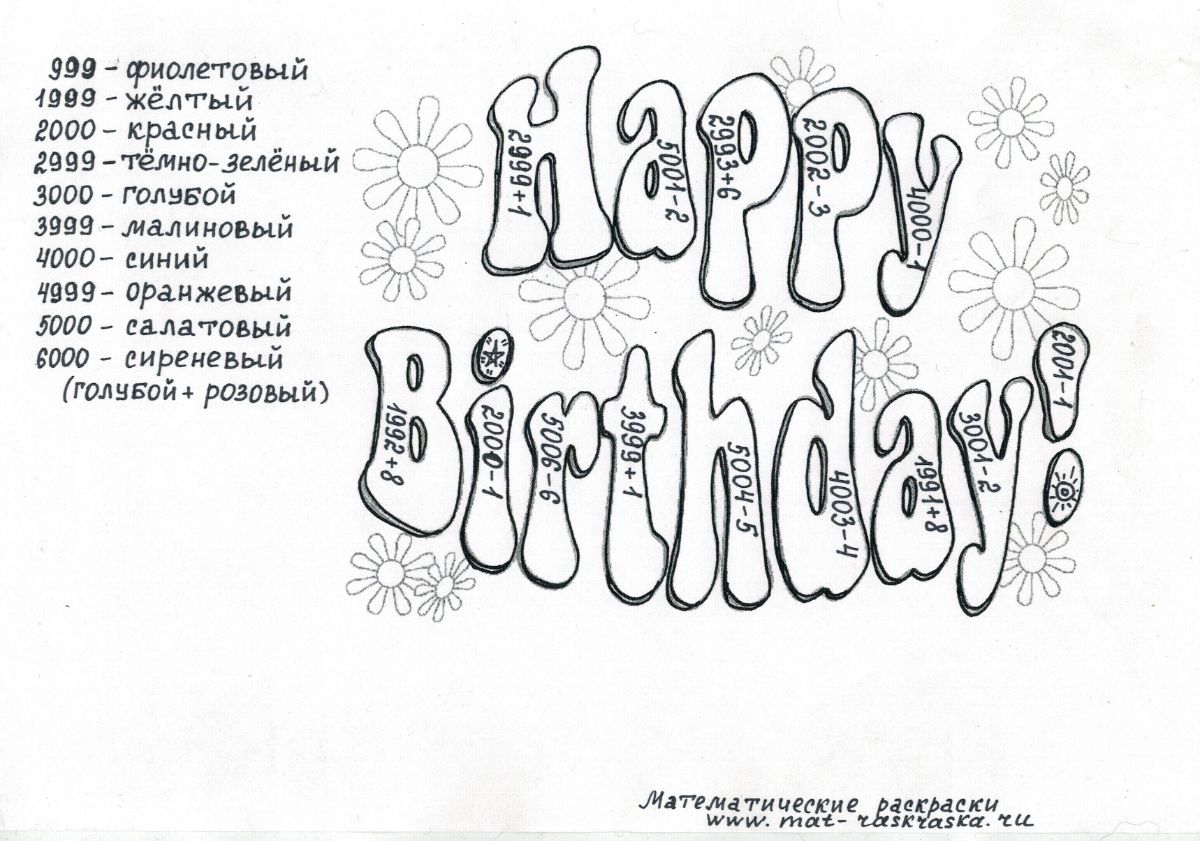 999 - фиолетовый
1999 - жёлтый
2000 - красный
2999 - тёмно-зелёный
3000 - голубой
3999 - малиновый
4000 - синий
4999 - оранжевый
5000 - салатовый
6000 - сиреневый
(голубой + розовый)
Happy
2999+1
5001-2
2993+6
2002-3
4000-1
Birthday!
1992+8
2000-1
5006-6
3999+1
5004-5
4003-4
1991+8
3001-2
2001-1
Математические раскраски
www.mat-raskraska.ru